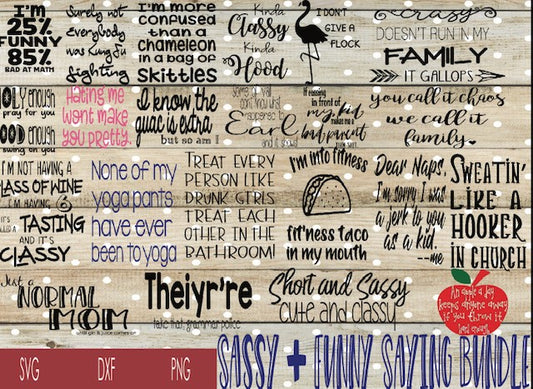 I'm
25%
FUNNY
85%
BAD AT MATH
Surely not
Everybody
was Kung fu
fighting
I'm more
confused
than a
chameleon
in a bag of
Skittles
Kinda
Classy
Kinda
Hood
I DON'T
GIVE A
FLOCK
crazy
DOESN'T RUN IN MY
FAMILY
IT GALLOPS
OLY enough
pray for you
OOD enough
swing on you
Hating me
wont make
you pretty.
I know the
guac is extra
but so am I
Some of y'all
Earl
and it shows
If cussing
in front of
my kid
makes me a
bad parent
you call it chaos
we call it
family.
I'M NOT HAVING A
LASS OF WINE
I'M HAVING 6
CALLED A
TASTING
AND IT'S
CLASSY
None of my
yoga pants
have ever
been to yoga
TREAT EVERY
PERSON LIKE
DRUNK GIRLS
TREAT EACH
OTHER IN THE
BATHROOM!
I'm into fitness
fit'ness taco
in my mouth
Dear Naps,
I'm sorry I was
a jerk to you
as a kid.
--me
SWEATIN'
LIKE A
HOOKER
IN CHURCH
Just a
NORMAL
MOM
Theiyr're
take that, grammar police
Short and Sassy
cute and classy
An apple a day
keeps anyone away
if you throw it
hard enough
SVG
DXF
PNG
SASSY + FUNNY SAYING BUNDLE